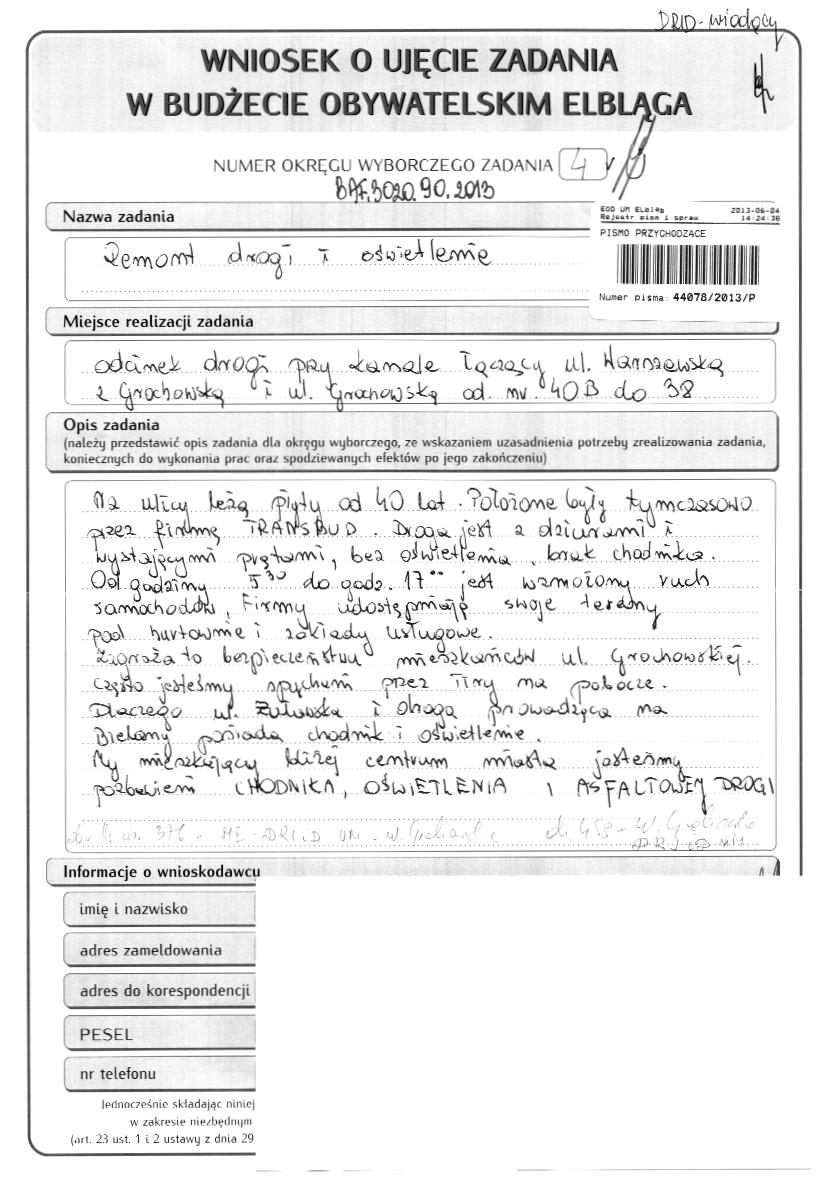 DRID - wiodący
WNIOSEK O UJĘCIE ZADANIA
W BUDŻECIE OBYWATELSKIM ELBLĄGA
NUMER OKRĘGU WYBORCZEGO ZADANIA 4
BAF.3020.90.2013
EOD UM Elbląg 2013-06-04
Rejestr pism i spraw 14:24:38
PISMO PRZYCHODZĄCE
Numer pisma: 44078/2013/P
Nazwa zadania
Remont drogi i oświetlenie
Miejsce realizacji zadania
odcinek drogi przy kanale łączący ul. Warszawską
z Grochowską i ul. Grochowską od nr. 40B do 38
Opis zadania
(należy przedstawić opis zadania dla okręgu wyborczego, ze wskazaniem uzasadnienia potrzeby zrealizowania zadania,
koniecznych do wykonania prac oraz spodziewanych efektów po jego zakończeniu)
Na ulicy leżą płyty od 40 lat. Położone były tymczasowo
przez firmę TRANSBUD. Droga jest z dziurami i
wystającymi prętami, bez oświetlenia, brak chodnika.
Od godziny 5³⁰ do godz. 17⁰⁰ jest wzmożony ruch
samochodów, Firmy udostępniają swoje tereny
pod hurtownie i zakłady usługowe.
Zagraża to bezpieczeństwu mieszkańców ul. Grochowskiej.
Często jesteśmy spychani przez Tiry na pobocze.
Dlaczego ul. Żuławska i droga prowadząca na
Bielany posiada chodnik i oświetlenie.
My mieszkający bliżej centrum miasta jesteśmy
pozbawieni CHODNIKA, OŚWIETLENIA I ASFALTOWEJ DROGI
Informacje o wnioskodawcu
imię i nazwisko
adres zameldowania
adres do korespondencji
PESEL
nr telefonu
Jednocześnie składając niniej
w zakresie niezbędnym
(art. 23 ust. 1 i 2 ustawy z dnia 29